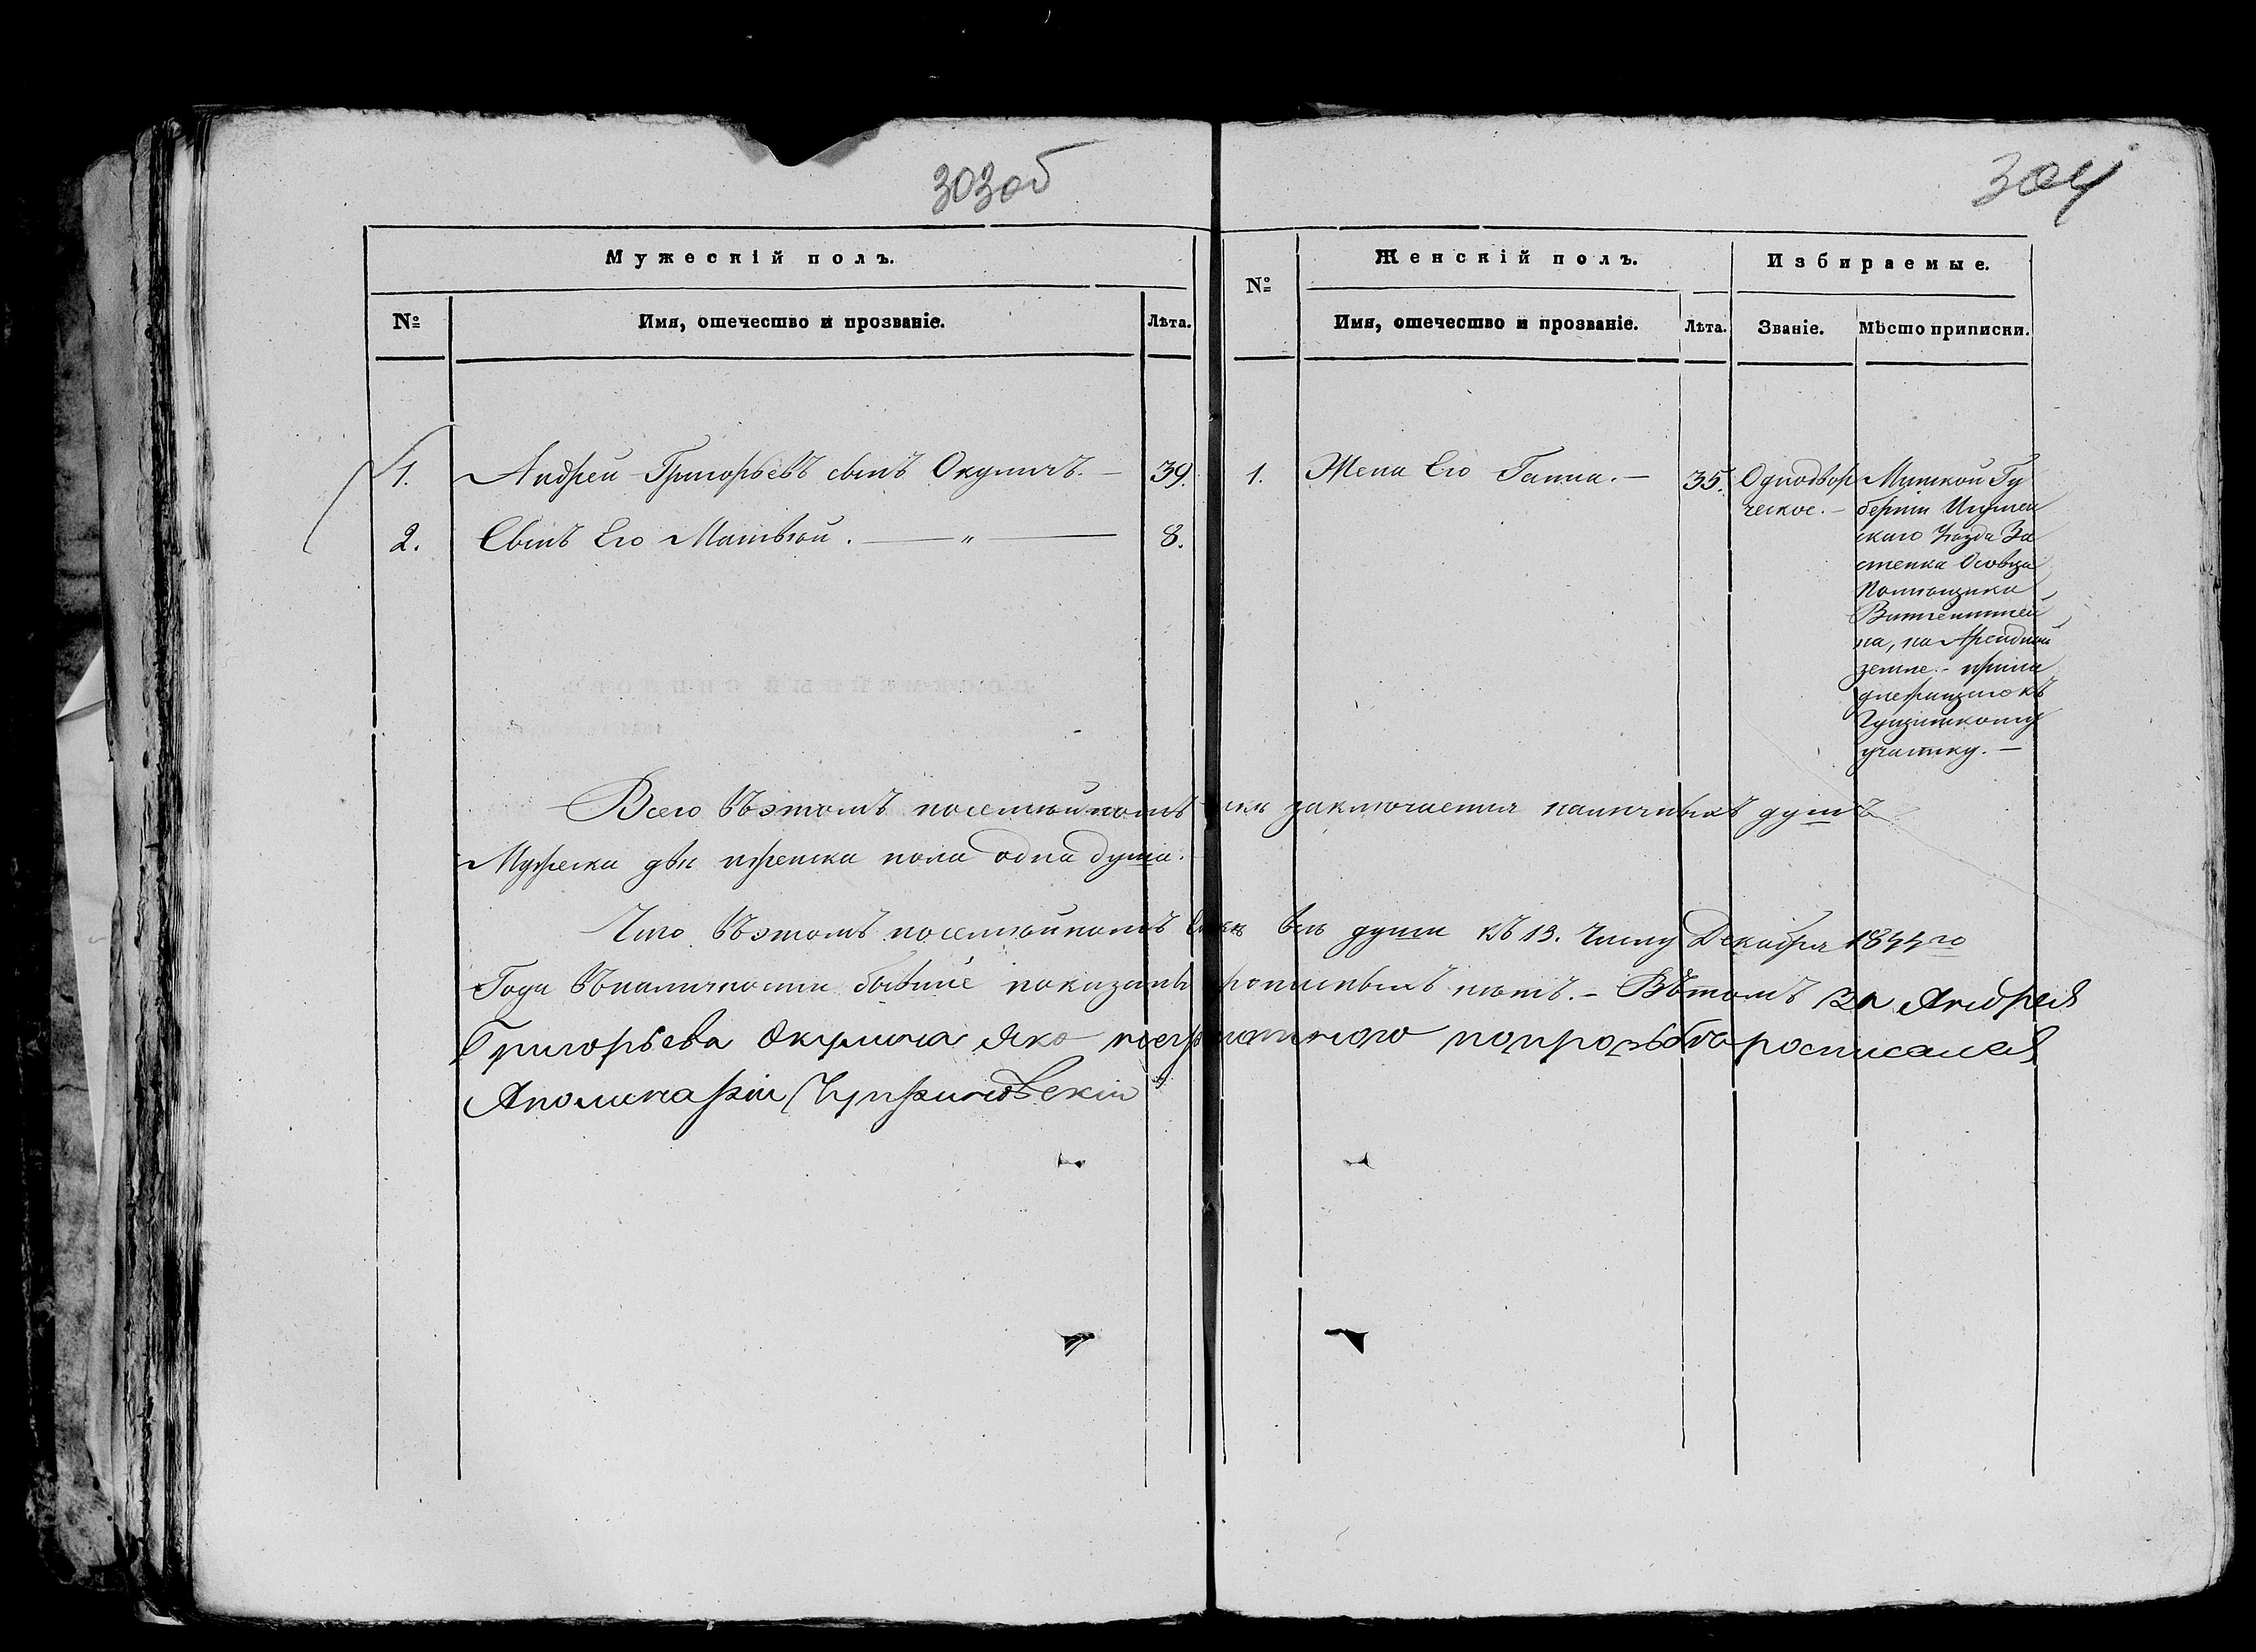 303об
304
Мужескій полъ.
№
Имя, отечество и прозваніе.
Лѣта.
№
Женскій полъ.
Имя, отечество и прозваніе.
Лѣта.
Избираемые.
Званіе.
Мѣсто приписки.
1.
Андрей Григорьевъ сынъ Окуличъ. —
39.
1.
Жена Его Ганна. —
35.
Однодвор
ческое. —
Минской Гу
берніи Игумен
скаго Уѣзда За
стенка Осовца
Помѣщика
Витгенштей
на, на Арендной
земле. —
участку. —
2.
Сынъ Его Матвѣй. — " —
8.
Всего въэтомъ посемейномъ заключается наличныхъ душъ
Мужеска двѣ женска пола одна душа.
Что въэтомъ посемейномъ всѣ души къ 13. Числу Декабря 1844го
Года въналичности бывшіе показаны прописныхъ нѣтъ. — Вътомъ за Андрея
Григорьева Окулича яко неграмотного попрозьбѣ росписался
Аполинарій